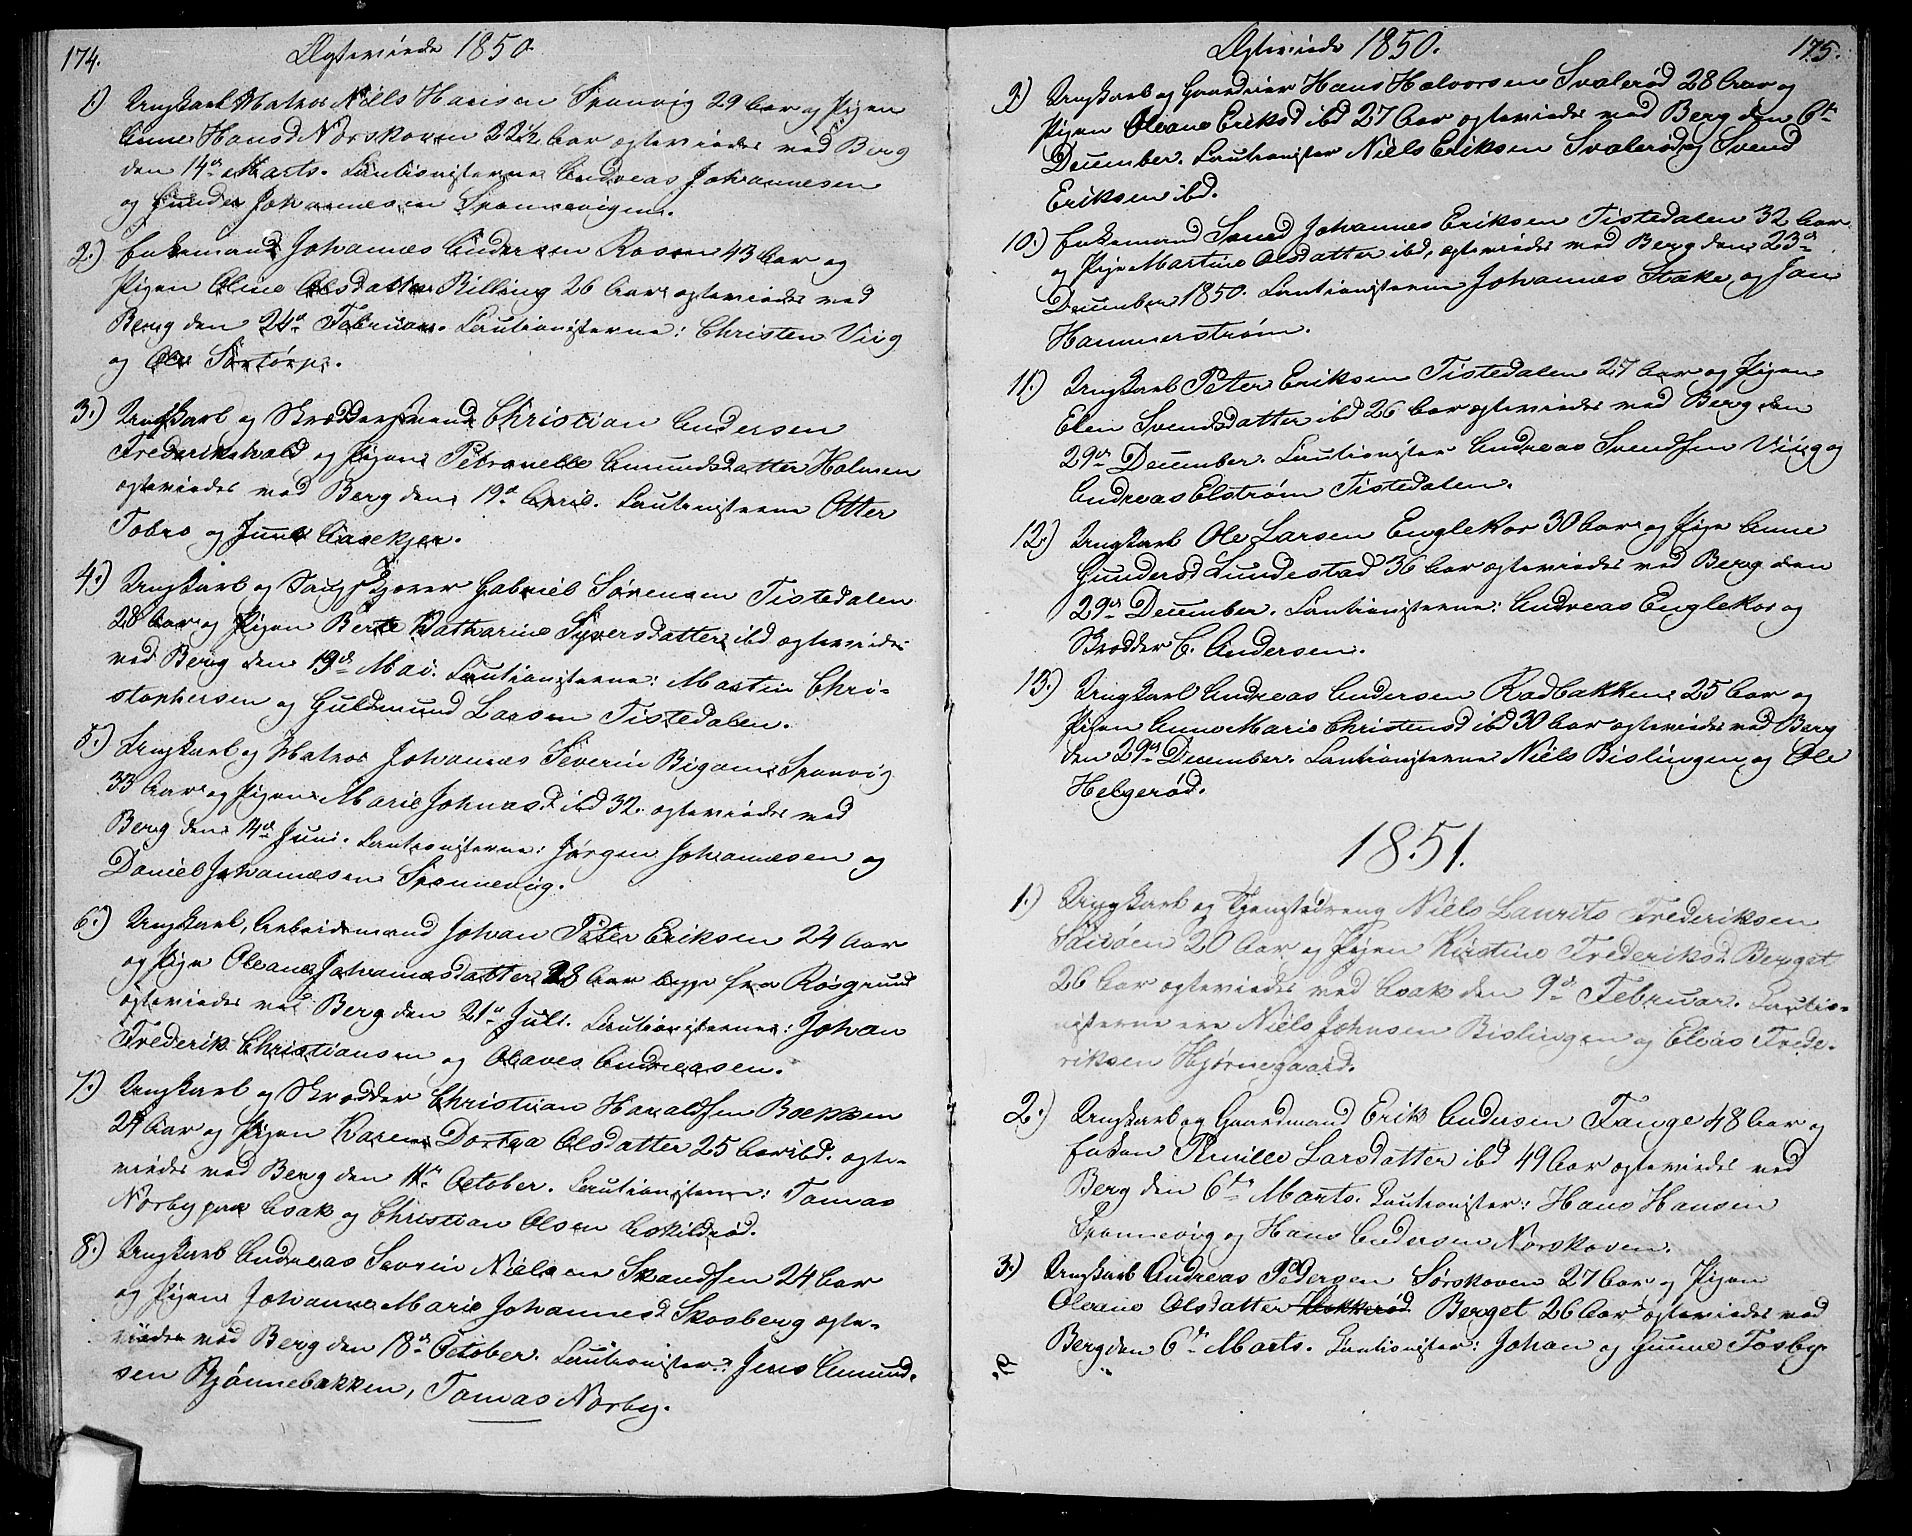 174.
Ægteviede 1850.
1.) Ungkarl Matros Niels Hansen Sponvig 29 Aar og Pigen
Anne Hansd Norskoven 22½ Aar ægteviedes ved Berg
den 14de Marts. Cautionisterne Andreas Johannesen
og Gunder Johannesen Sponnevigen.
2.) Enkemand Johannes Andersen Rosen 43 Aar og
Pigen Oline Olsdatter Billing 26 Aar ægteviedes ved
Berg den 24de Februar. Cautionisterne: Christen Viig
og Ole Sørtorp.
3.) Ungkarl og Skrædersvend Christian Andersen
Frederikshald og Pigen Petronelle Amundsdatter Holmen
ægteviedes ved Berg den 19de April. Cautionisterne Otter
Tobro og Juul Aasekjer.
4.) Ungkarl og Saugskjører Gabriel Sørensen Tistedalen
28 Aar og Pigen Berte Katharine Syversdatter ibd ægteviedes
ved Berg den 19de Mai. Cautionisterne: Martin Chri-
stophersen og Guldmund Larsen Tistedalen.
5.) Ungkarl og Matros Johannes Severin Bigom Sponvig
33 Aar og Pigen Marie Johnasd ibd 32. ægteviedes ved
Berg den 14de Juni. Cautionisterne: Jørgen Johannesen og
Daniel Johannesen Sponnevig.
6.) Ungkarl, Arbeidsmand Johan Peter Eriksen 24 Aar
og Pige Oleane Johannesdatter 28 Aar begge fra Røsgrund
ægteviedes ved Berg den 21de Juli. Cautionisterne: Johan
Frederik Christiansen og Olaves Andreasen.
7.) Ungkarl og Skrædder Christian Haraldsen Bakken
24 Aar og Pigen Karen Dortea Olsdatter 25 Aar ibd. ægte-
viedes ved Berg den 11te October. Cautionisterne: Tomas
Norby paa Asak og Christian Olsen Eskildrød.
8.) Ungkarl Andreas Severin Nielsen Skandsen 24 Aar
og Pigen Johanne Marie Johannesd Skosberg ægte-
viedes ved Berg den 18de October. Cautionister: Jens Amund-
sen Bjønnebakken, Tomas Norby.
Ægteviede 1850.
175.
9.) Ungkarl og Gaardeier Hans Halvorsen Svalerød 28 Aar og
Pigen Oleane Eriksd ibd 27 Aar ægteviedes ved Berg den 6te
December. Cautionister Niels Eriksen Svalerød og Svend
Eriksen ibd.
10.) Enkemand Smed Johannes Eriksen Tistedalen 32 Aar
og Pige Martine Olsdatter ibd, ægteviedes ved Berg den 23de
December 1850. Cautionisterne Johannes Stake og Jan
Hammerstrøm.
11.) Ungkarl Peter Eriksen Tistedalen 27 Aar og Pigen
Elen Svendsdatter ibd 26 Aar ægteviedes ved Berg den
29de December. Cautionister Andreas Svendsen Viig og
Andreas Elstrøm Tistedalen.
12.) Ungkarl Ole Larsen Englekor 30 Aar og Pige Anne
Gundersd Lundestad 36 Aar ægteviedes ved Berg den
29de December. Cautionisterne: Andreas Englekor og
Skrædder C. Andersen.
13.) Ungkarl Andreas Andersen Kadbakken 25 Aar og
Pigen Anne Marie Christensd ibd 30 Aar ægteviedes ved Berg
den 29de December. Cautionisterne Niels Bislingen og Ole
Helgerød.
1851.
1.) Ungkarl og Tjenestedreng Niels Laurits Frederiksen
20 Aar og Pigen Kirstine Frederiksd Berget
26 Aar ægteviedes ved Asak den 9de Februar. Cautio-
nisterne ere Niels Johnsen Bislingen og Elias Frede-
riksen Hjørnegaard.
2.) Ungkarl og Gaardmand Erik Andersen Tange 48 Aar og
Enken Pernille Larsdatter ibd 49 Aar ægteviedes ved
Berg den 6te Marts. Cautionister: Hans Hansen
Sponnevig og Hans Andersen Norskoven.
3.) Ungkarl Andreas Pedersen Sørskoven 27 Aar og Pigen
Oleane Olsdatter Hokkerød Berget 26 Aar ægteviedes ved
Berg den 6te Marts. Cautionister: Johan og Gunne Tosby